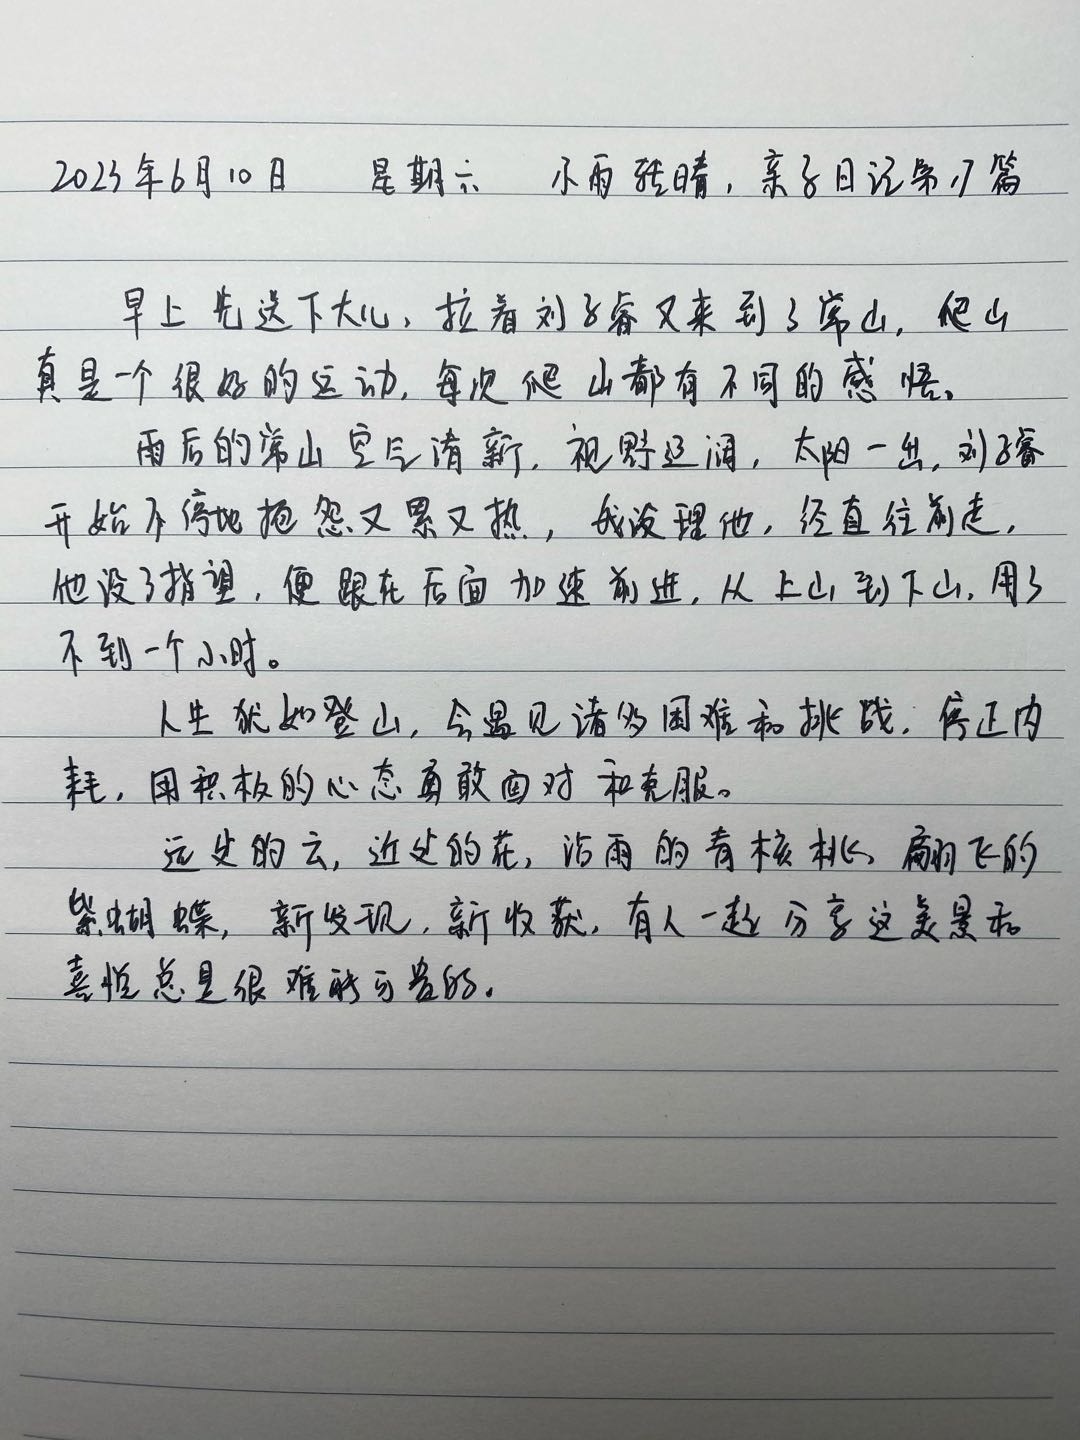 2023年6月10日 星期六 小雨转晴,亲子日记第17篇
早上先送下大儿,拉着刘子睿又来到了常山,爬山
真是一个很好的运动,每次爬山都有不同的感悟。
雨后的常山空气清新,视野辽阔,太阳一出,刘子睿
开始不停地抱怨又累又热,我没理他,径直往前走,
他没了指望,便跟在后面加速前进,从上山到下山,用了
不到一个小时。
人生犹如登山,会遇见诸多困难和挑战,停止内
耗,用积极的心态勇敢面对和克服。
远处的云,近处的花,沾雨的青核桃、翩飞的
紫蝴蝶,新发现,新收获,有人一起分享这美景和
喜悦总是很难能可贵的。